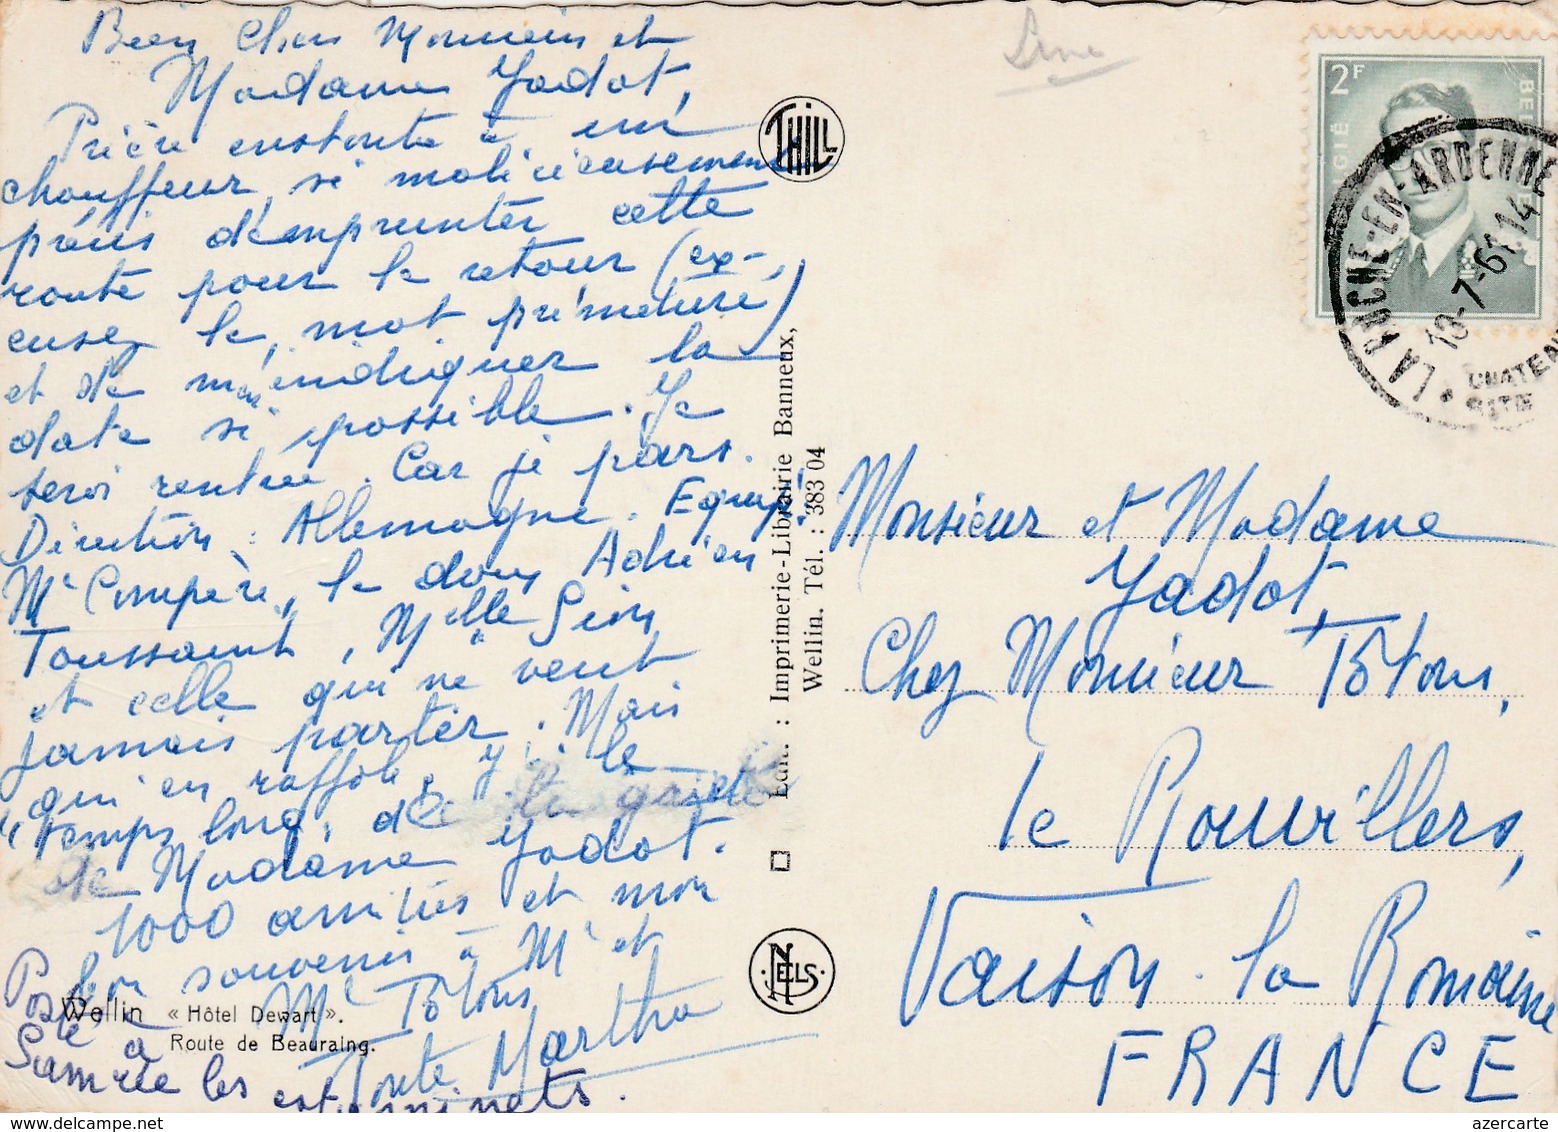 Bien Chers Monsieur et
Madame Jadot,
Prière instante à un
chauffeur, si malicieusement
précis d'emprunter cette
route pour le retour (ex-
cusez le, mot prématuré)
et de m'indiquer la
date si possible. Je
serai rentrée. Car je pars.
Direction: Allemagne. Equipe:
Mr Compère, le doux Adrien
Toussaint, Melle Sion
et celle qui ne veut
jamais partir. Mais
qui en raffole, y'. le
"temps long" de la gaieté
de Madame Jadot.
1000 amitiés et mon
bon souvenir à Mr et
Me Tótons
Tante Martha
Posté à
Samrée les estaminets.
Wellin « Hôtel Dewart ».
Route de Beauraing.
THILL
Edit. : Imprimerie-Librairie Banneux,
Wellin. Tél. : 383 04
NELS
2F
BELGIË
LA ROCHE-EN-ARDENNE
18-7-61 14
Monsieur et Madame
Jadot,
Chez Monsieur Tótons,
le Rouvillers,
Vaison-la Romaine
FRANCE
azercarte
www.delcampe.net